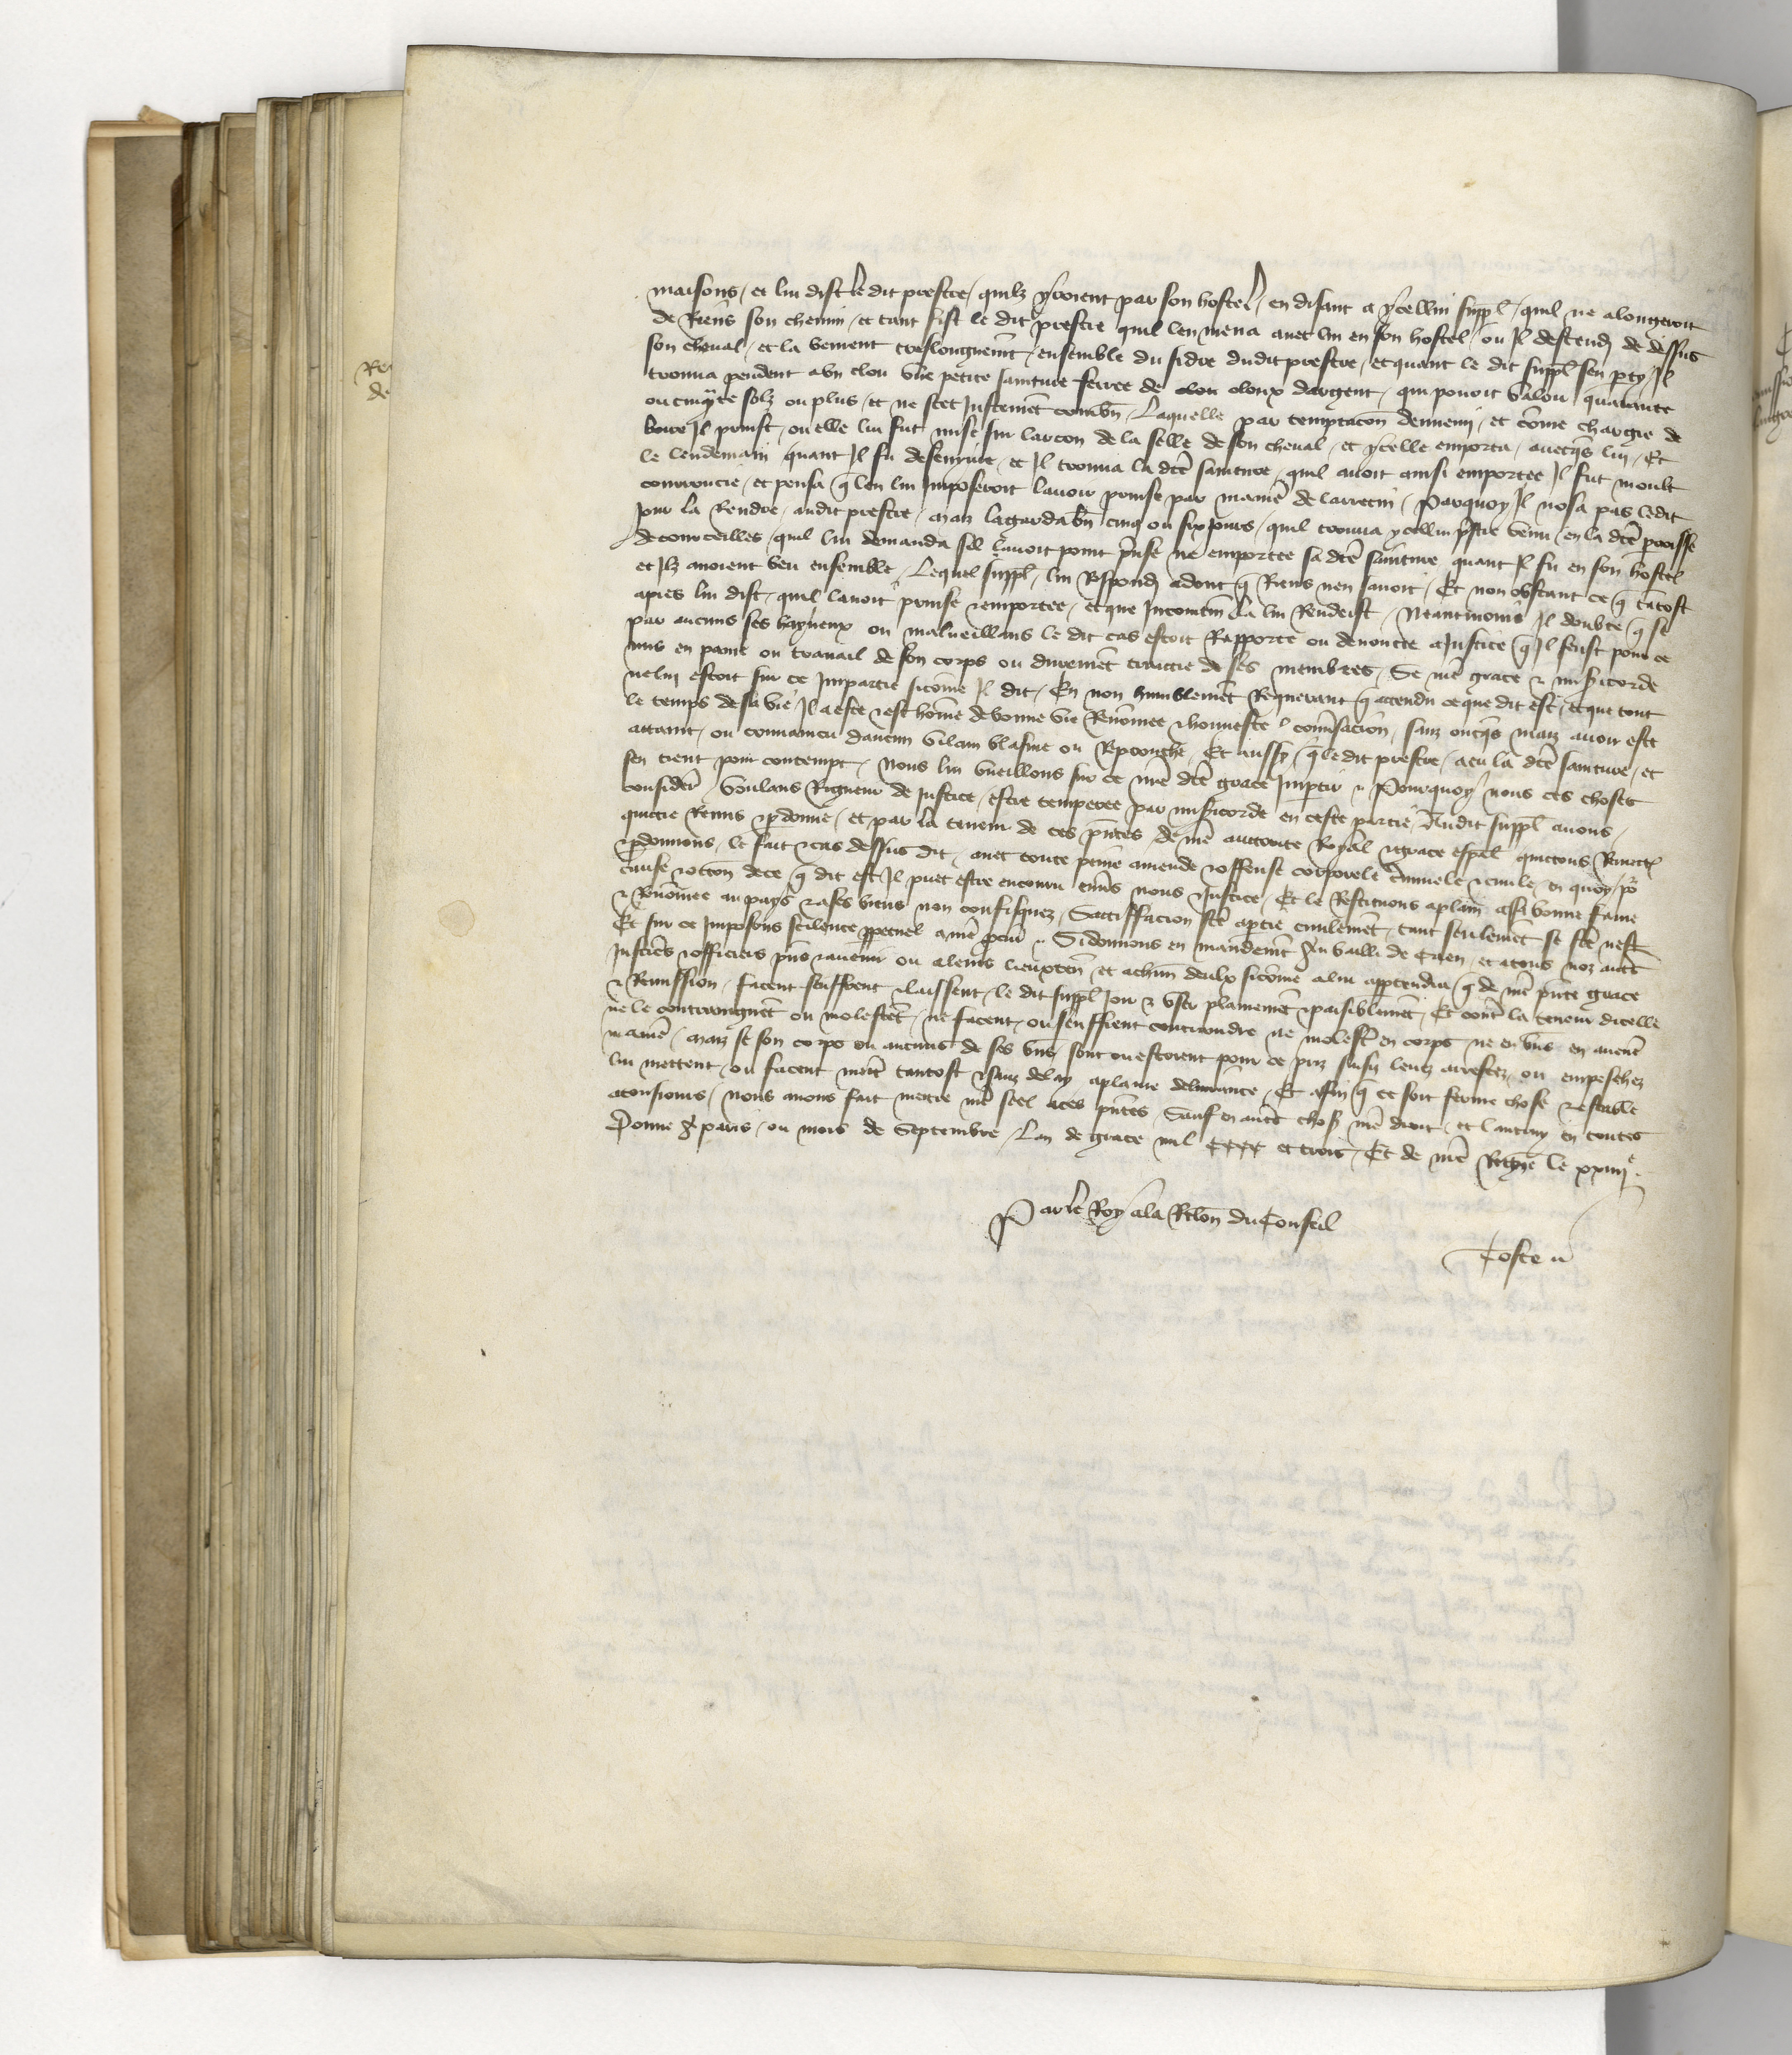 maisons / et lui dist le dit prestre / quilz yroient par son hostel / en disant a ycellui suppl / quil ne alongeroit
de Riens son chemin / et tant fist le dit prestre quil len mena avec lui en son hostel / ou Il descendy de dessus
son cheval / et la beurent treslonguemt / ensemble du sidre dudit prestre / et quant le dit suppl sen party / Il
trouva pendent a un clou une petite sainture ferree de cloux dargent / qui pouoit valoir quarante
ou cinqte solz ou plus / et ne scet Justemet combn / Laquelle par temptacon dennemi / et come chargie de
boire Il prinst / ou elle lui fut mise sur larcon de la selle de son cheval / et ycelle emporta / avecqs lui / Et
le lendemain quant Il fu desenyvre / et Il trouva la dce sainture / quil avoit ainsi emportee Il fut moult
courroucie / et pensa q len lui Imposeroit lavoir prinse par maniere de larrecin / Parquoy Il nosa pas ledit
Jour la Rendre / audit prestre / maiz la garda bn cinq ou six jours / quil trouva ycellui pstre venu en la dce parroisse
de courceilles / quil lui demanda sil lavoit point prinse ne emportee sa dce sainture quant Il fu en son hostel
et Ilz avoient beu ensemble / Lequel suppl / lui Respondy adont q Riens nen savoit / Et non obstant ce q tatost
apres lui dist / quil lavoit prinse & emportee / et que Incontin la lui Renderist / Neantmoins Il doubte q se
par aucuns ses hayneux ou malveillans le dit cas estoit Rapporte ou denoncie a Justice q Il feust pour ce
mis en paine ou travail de son corps ou durement traictie de ses membres / Se nre grace & misericorde
ne lui estoit sur ce Impartie sicome Il dit / En nous humblement Requerant q attendu ce que dit est / et que tout
le temps de sa vie Il a este & est home de bonne vie Renomee & honneste conversacion / sanz oncqs maiz avoir este
attaint / ou convaincu daucun vilain blasme ou Reprouche / Et aussy / q le dit prestre / a eu la dce sainture / et
sen tient pour contempt / Nous lui vueillons sur ce nre dce grace Impartir // Pourquoy nous ces choses
considerees / Voulans Rigueur de Justice / estre temperee par misericorde en ceste partie / Audit suppl avons /
quictie Remis & pardonne / et par la teneur de ces pntes de nre auctorite Royal & grace espal quictons Remectons
& pardonnons / le fait & cas dessus dit / avec toute peine amende & offense corporele criminele & civile / en quoy / por
cause & occon de ce q dit est Il puet estre encouru envs nous & Justice / Et le Restituons a plain a sa bonne fame
& Renomee au pays & a ses biens non confisquez / Satisffacion fce a partie civilement / tant seulement se fce nest
Et sur ce Imposons scilence perpetuel a nre procur // Si donnons en mandement Au bailli de Caen / et a tous noz autres
Justiciers & officiers pns & avenir ou a leurs lieuxten / et a chun deulx sicome a lui appartendra q de nre pnte grace
& Remission / facent seuffrent & laissent / le dit suppl Joir & user plainement & paisiblement / Et contre la teneur dicelle
ne le contraingnent ou molestent / ne facent / ou seuffrent contraindre ne molester en corps / ne en biens en aucune
maniere / maiz se son corps ou aucuns de ses bns / sont ou estoient pour ce priz saisiz levez arrestez / ou empeschez
lui mettent / ou facent mettre tantost & sanz delay a plaine delivrance / Et affin q ce soit ferme chose & estable
a tousjours / nous avons fait mettre nre seel a ces pntes / Sauf en autres choses nre droit / et lautruy en toutes
Donne A paris / ou mois de Septembre / Lan de grace mil CCCC et trois / Et de nre Regne le xxiiije
Par le Roy a la Relon du Conseil
Toste //
Re
de